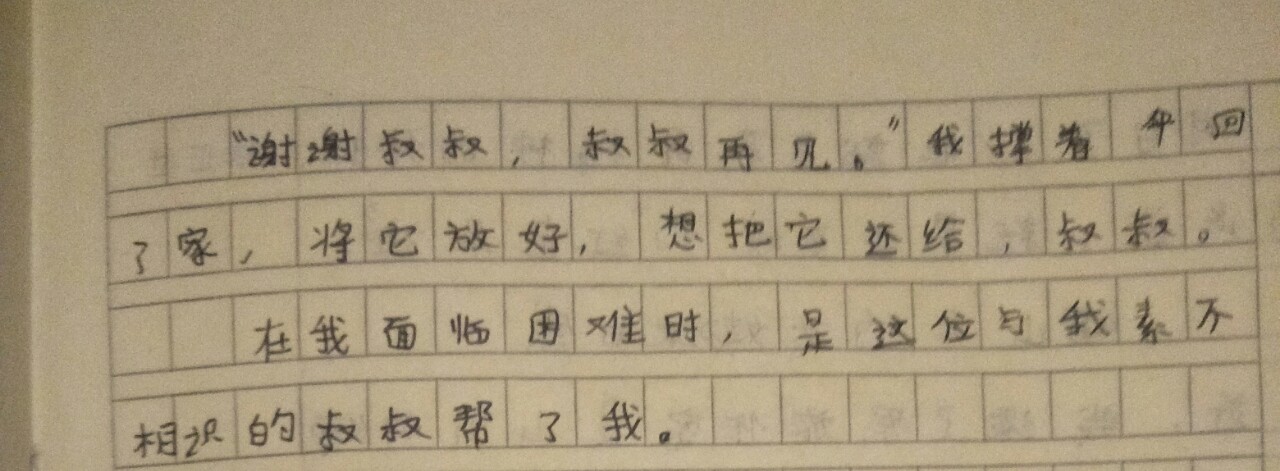 “谢谢叔叔，叔叔再见。”我撑着伞回
了家，将它放好，想把它还给，叔叔。
在我面临困难时，是这位与我素不
相识的叔叔帮了我。